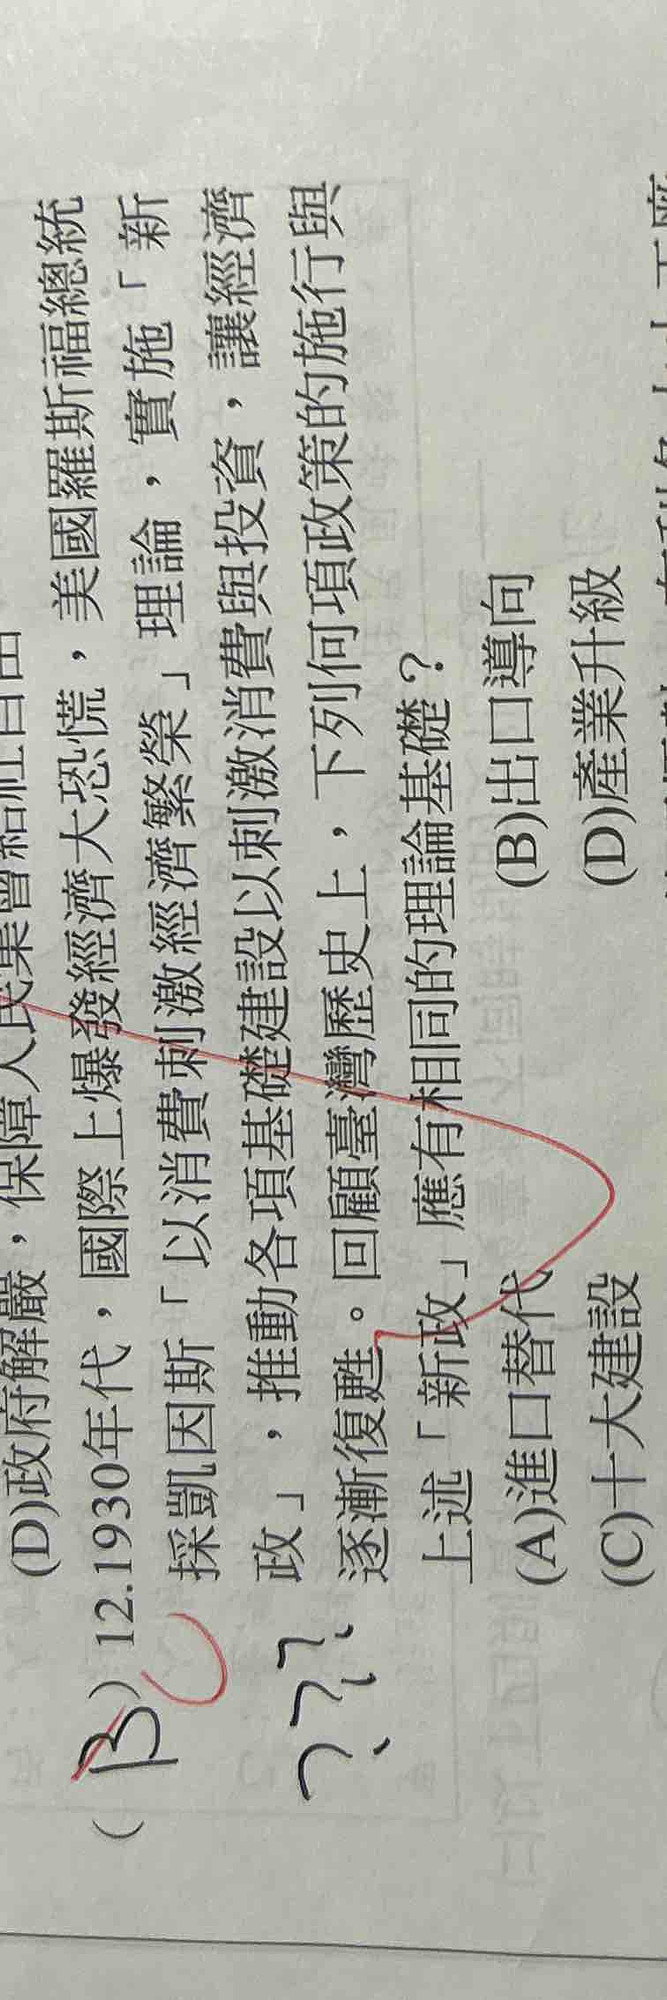 (D)政府解嚴，保障人民集會結社自由
(B) 12.1930年代，國際上爆發經濟大恐慌，美國羅斯福總統
C
採凱因斯「以消費刺激經濟繁榮」理論，實施「新
政」，推動各項基礎建設以刺激消費與投資，讓經濟
???
逐漸復甦。回顧臺灣歷史上，下列何項政策的施行與
上述「新政」應有相同的理論基礎？
(A)進口替代 (B)出口導向
(C)十大建設 (D)產業升級